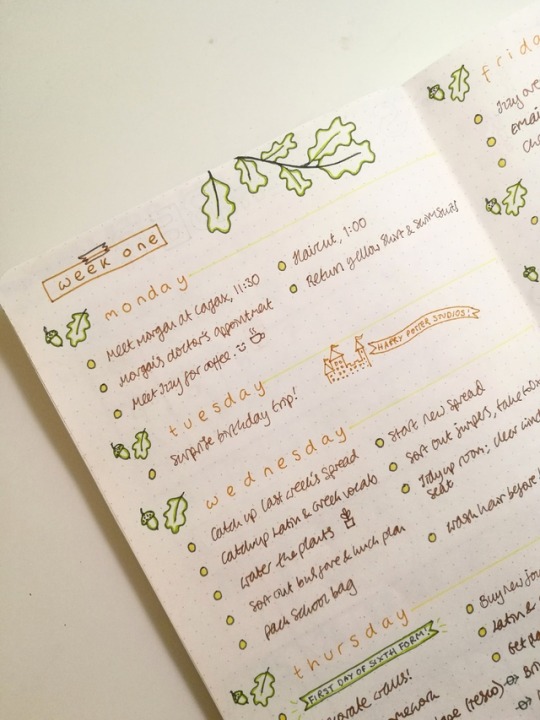 week one
monday
Meet Morgan at Cagax, 11:30
Morgan's doctor's appointment
Meet Izzy for coffee.
Haircut, 1:00
Return yellow shirt & swimsuits
tuesday
surprise birthday trip!
HARRY POTTER STUDIOS!
wednesday
Catch up last week's spread
Catch up Latin & Greek vocab
water the plants
sort out bus fare & lunch plan
pack school bag
start new spread
sort out jumpers, take
Tidy up room: clear
seat
wash hair before
thursday
FIRST DAY OF SIXTH FORM!
Buy new
Latin &
Get
(tesco)
friday
Izzy
Email